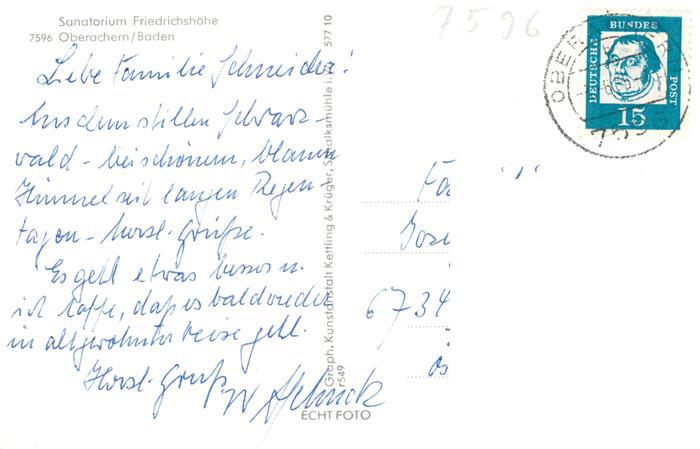 Sanatorium Friedrichshöhe
7596 Oberachern/Baden
577 10
7596
Liebe Familie Schneider!
Aus dem stillen Schwarz-
wald - bei schönem, blauem
Himmel seit langen Regen-
tagen - herzl. Grüße.
Es geht etwas besser u.
ich hoffe, daß es bald wieder
in altgewohnter Weise geht.
Herzl. Gruß
Graph. Kunstanstalt Kettling & Krüger, Schalksmühle i.
r549
ECHT FOTO
DEUTSCHE BUNDESPOST
15
OBER
7596
6734